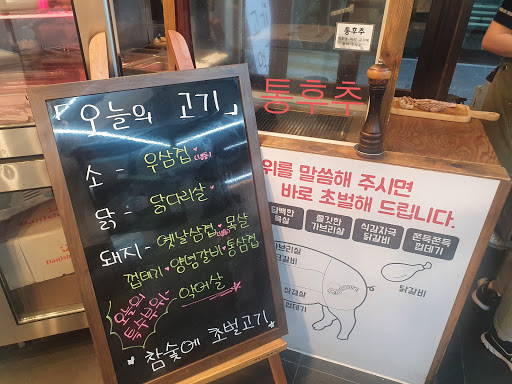 「오늘의 고기」
소 - 우삼겹
닭 - 닭다리살
돼지 - 옛날삼겹 목살
껍데기 양념갈비 통삼겹
오늘의
특수부위
악어살
참숯에 초벌고기
통후추
통후추
위를 말씀해 주시면
바로 초벌해 드립니다.
담백한
목살
쫄깃한
가브리살
식감자극
닭갈비
쫀득쫀득
껍데기
가브리살
삼겹살
껍데기
닭갈비